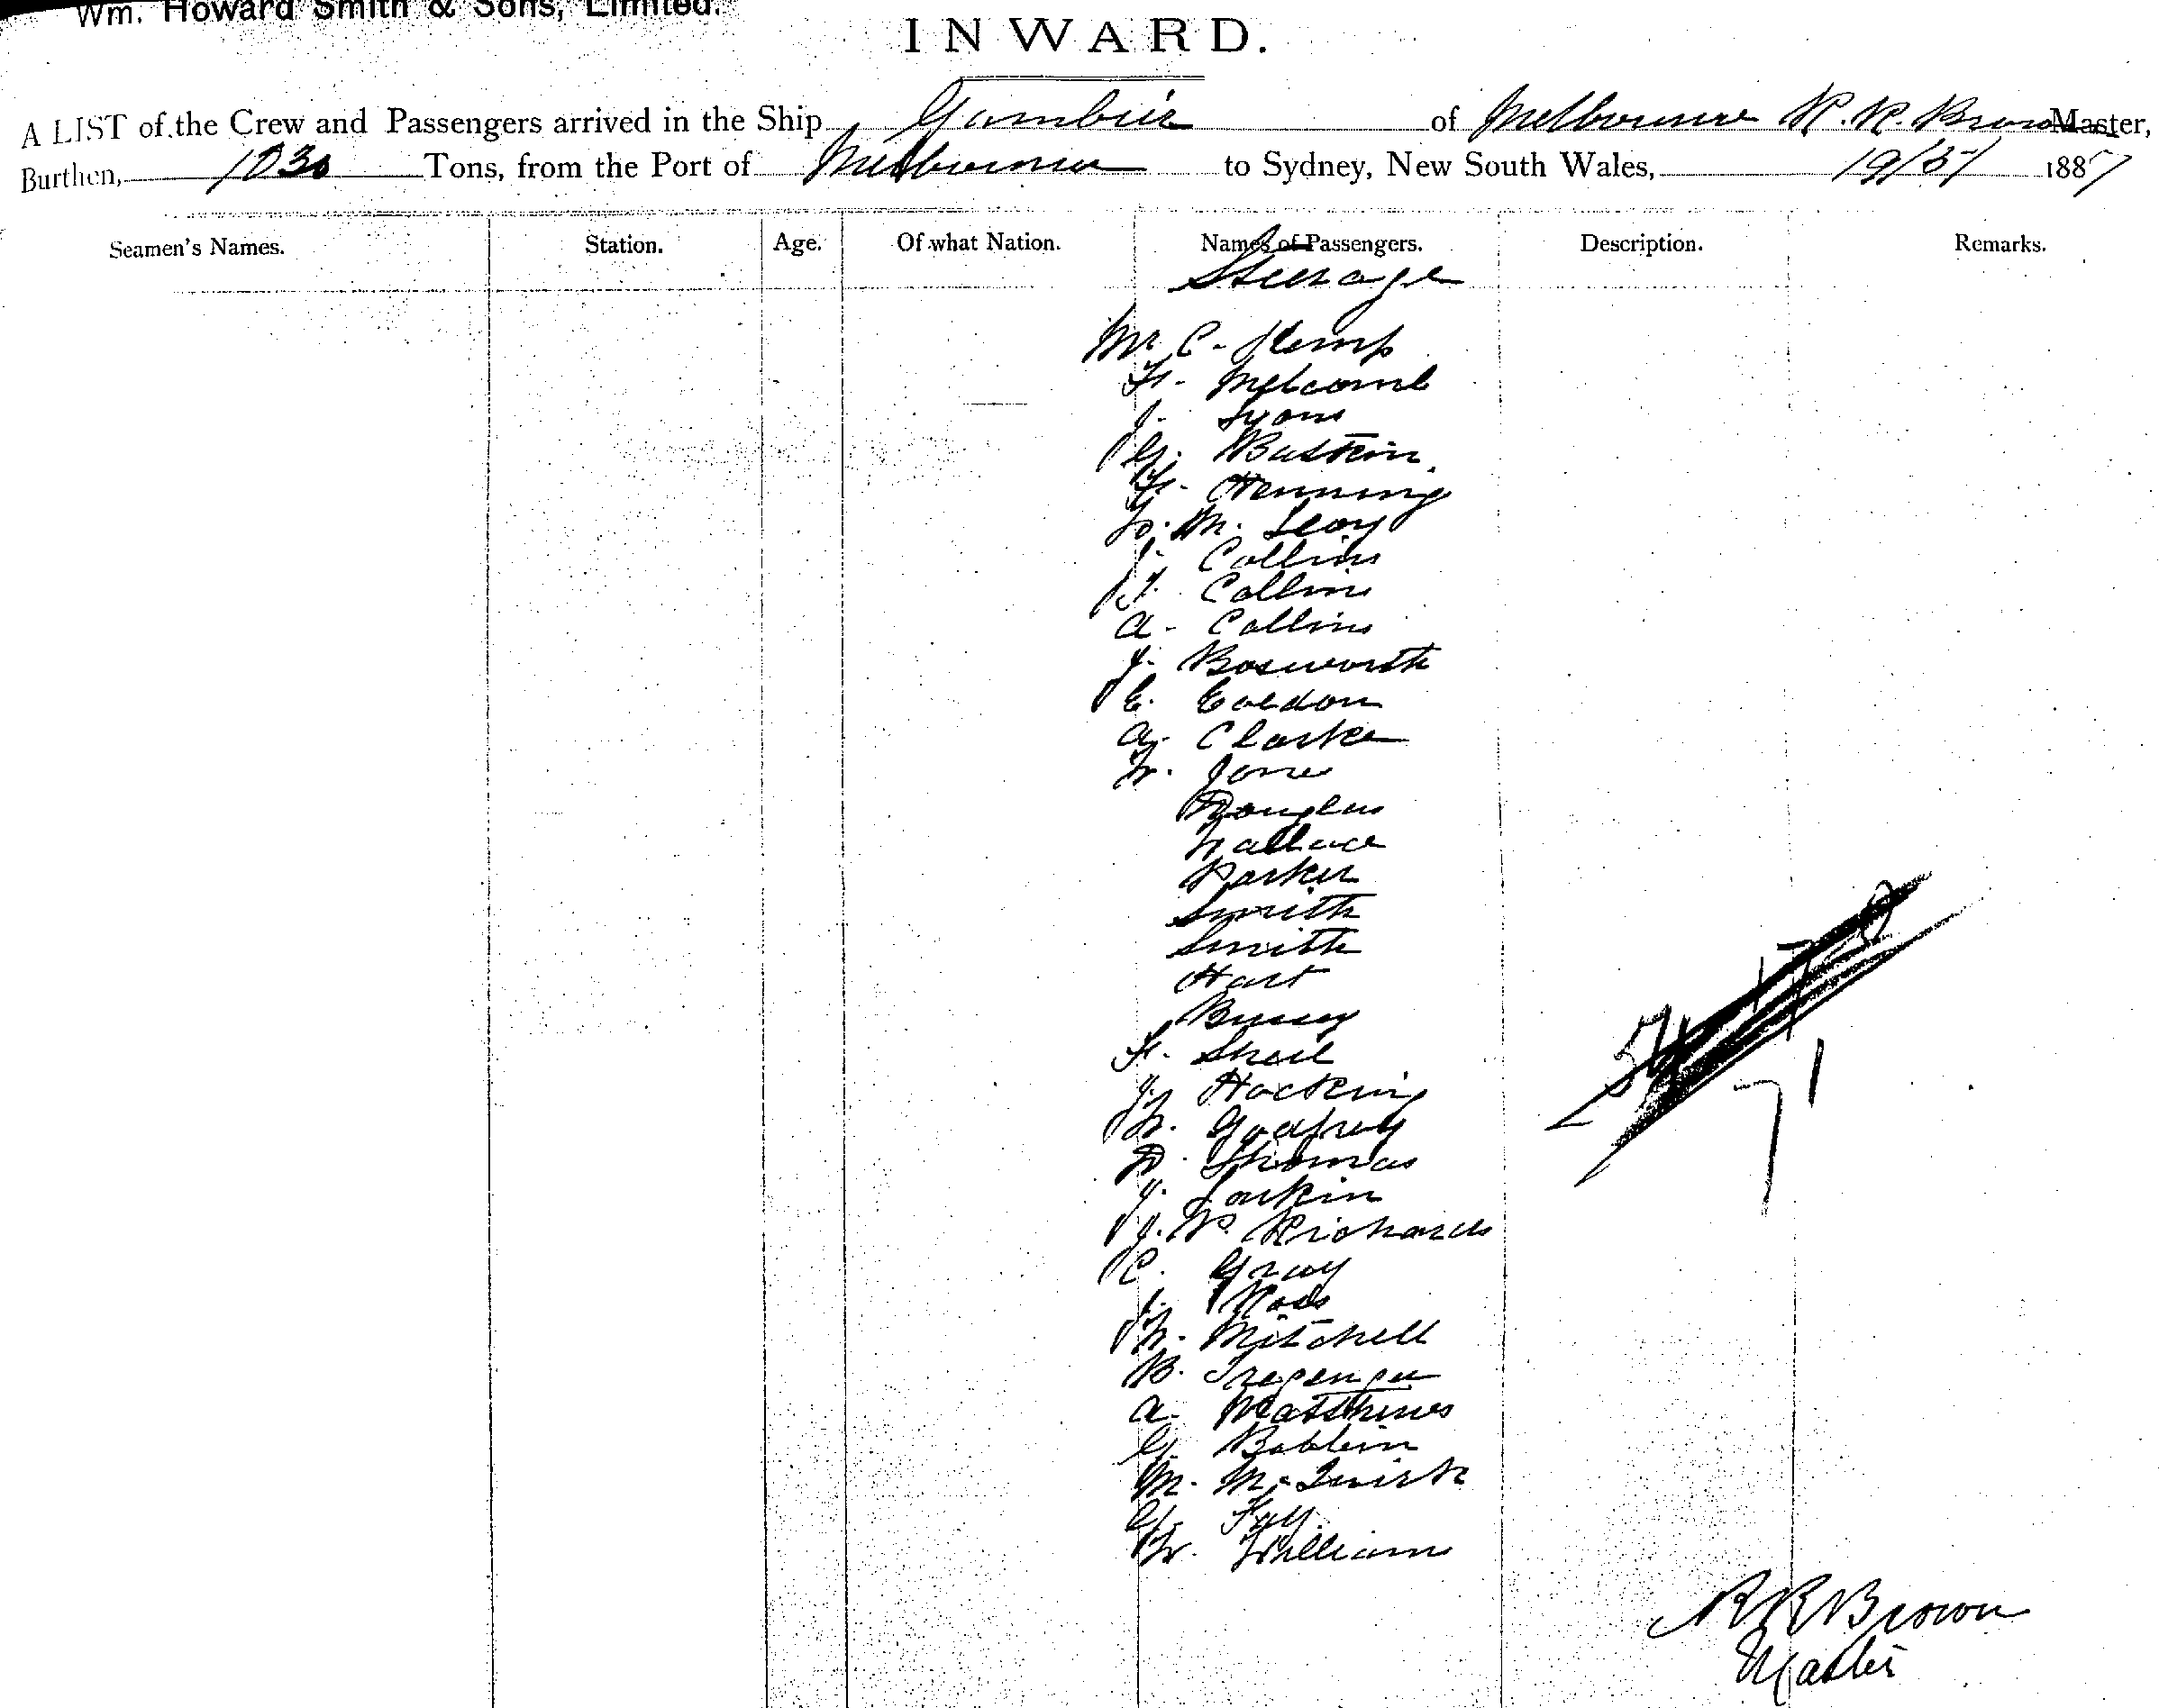 Wm. Howard Smith & Sons, Limited.
INWARD.
A LIST of the Crew and Passengers arrived in the Ship Gambier of Melbourne R. R. Brown Master,
Burthen, 1030 Tons, from the Port of Melbourne to Sydney, New South Wales, 19/5/ 1887
Seamen's Names. Station. Age. Of what Nation. Names of Passengers. Description. Remarks.
Steerage
Mr C. Kemp
F. Welcome
J. Lyons
G. Baskin
F. Henning
S. M. Levy
J. Collins
T. Collins
A. Collins
J. Bosworth
E.
A. Clarke
W. Jones
Douglas
Wallace
Parker
Smith
Smith
Hart
F. Sheil
J. Hocking
W. Godfrey
D. Thomas
J. Larkin
J. P. Richards
C. Gray
J. Ross
W. Mitchell
B.
A. Matthews
G.
M. McQuirk
G. Fay
W. William
71
R R Brown
Master